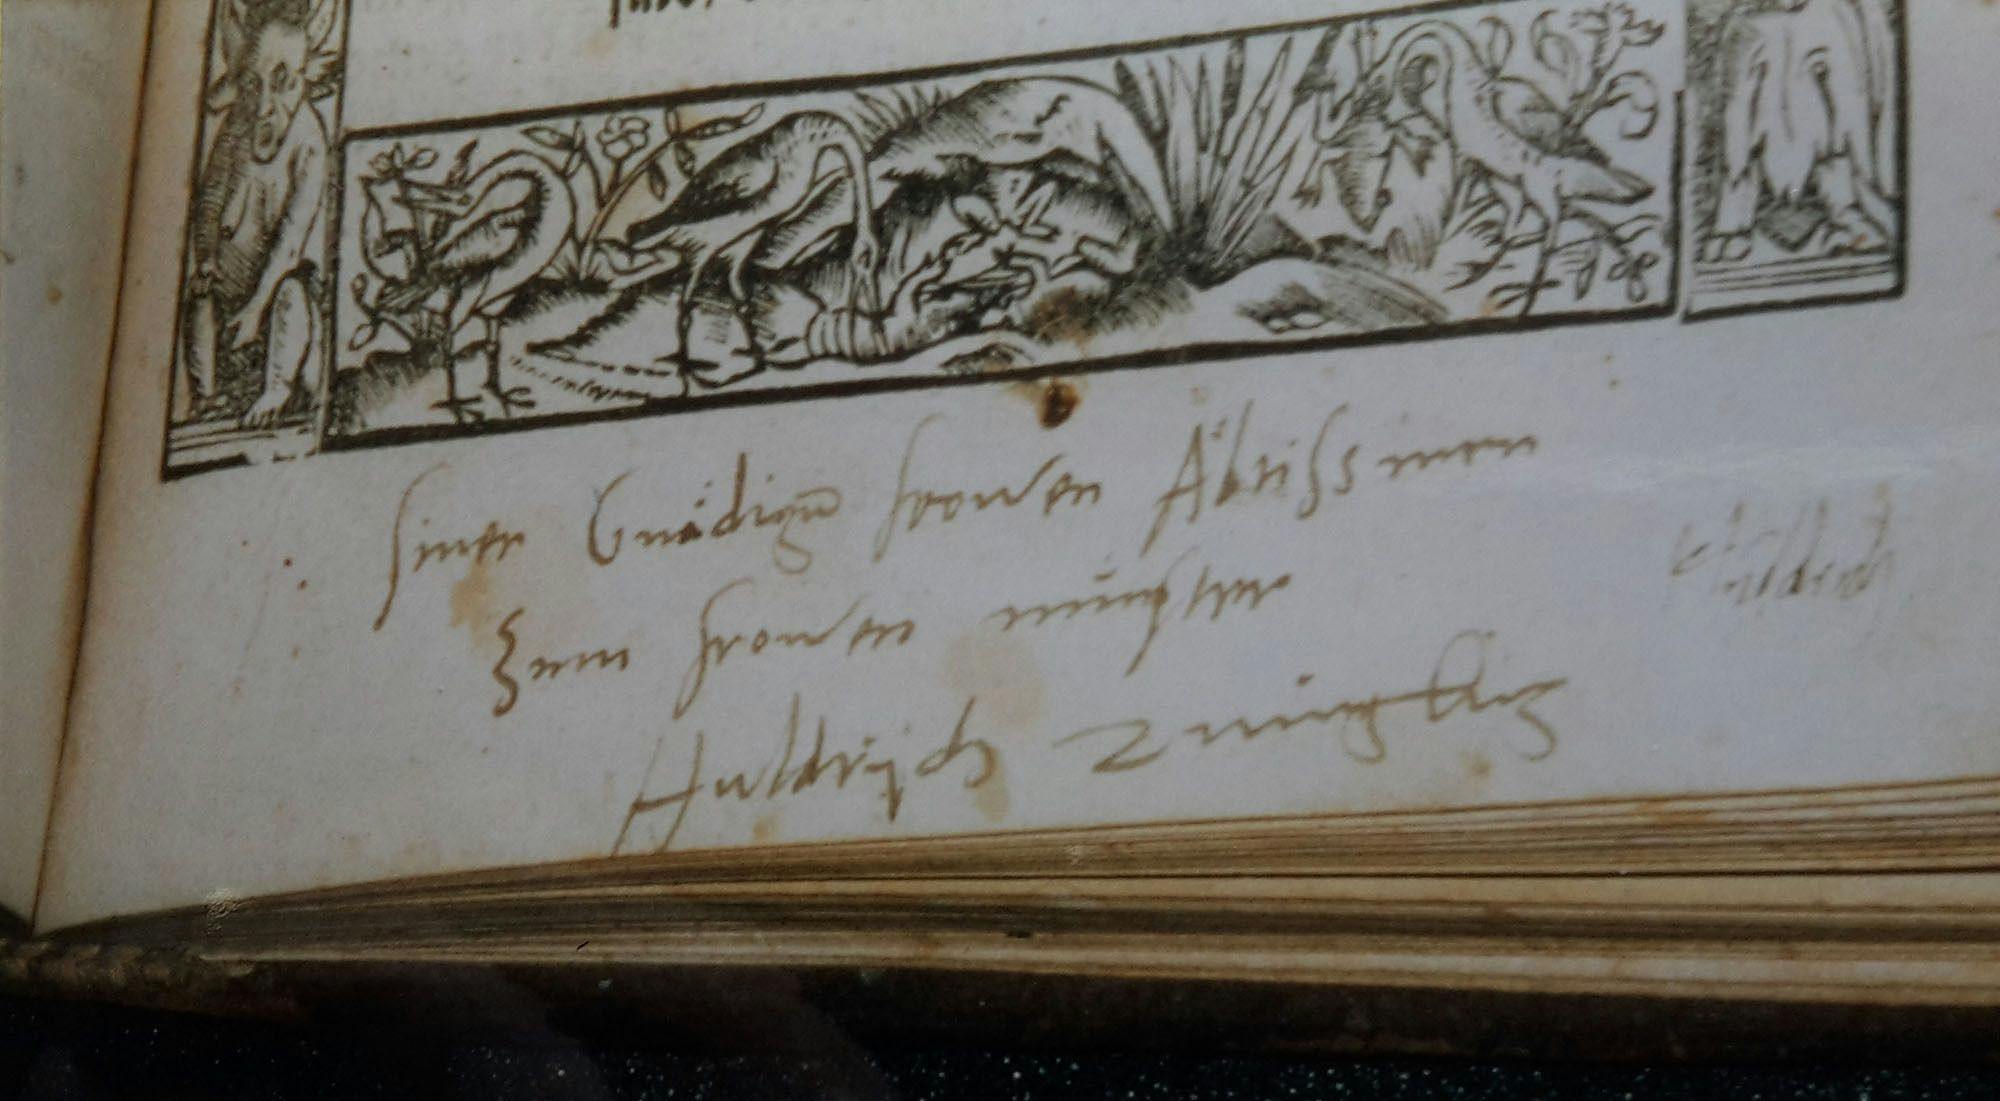 siner Gnädigē frowen Äbtissinnen
zum frowen münster
Huldrÿch Zuingliz